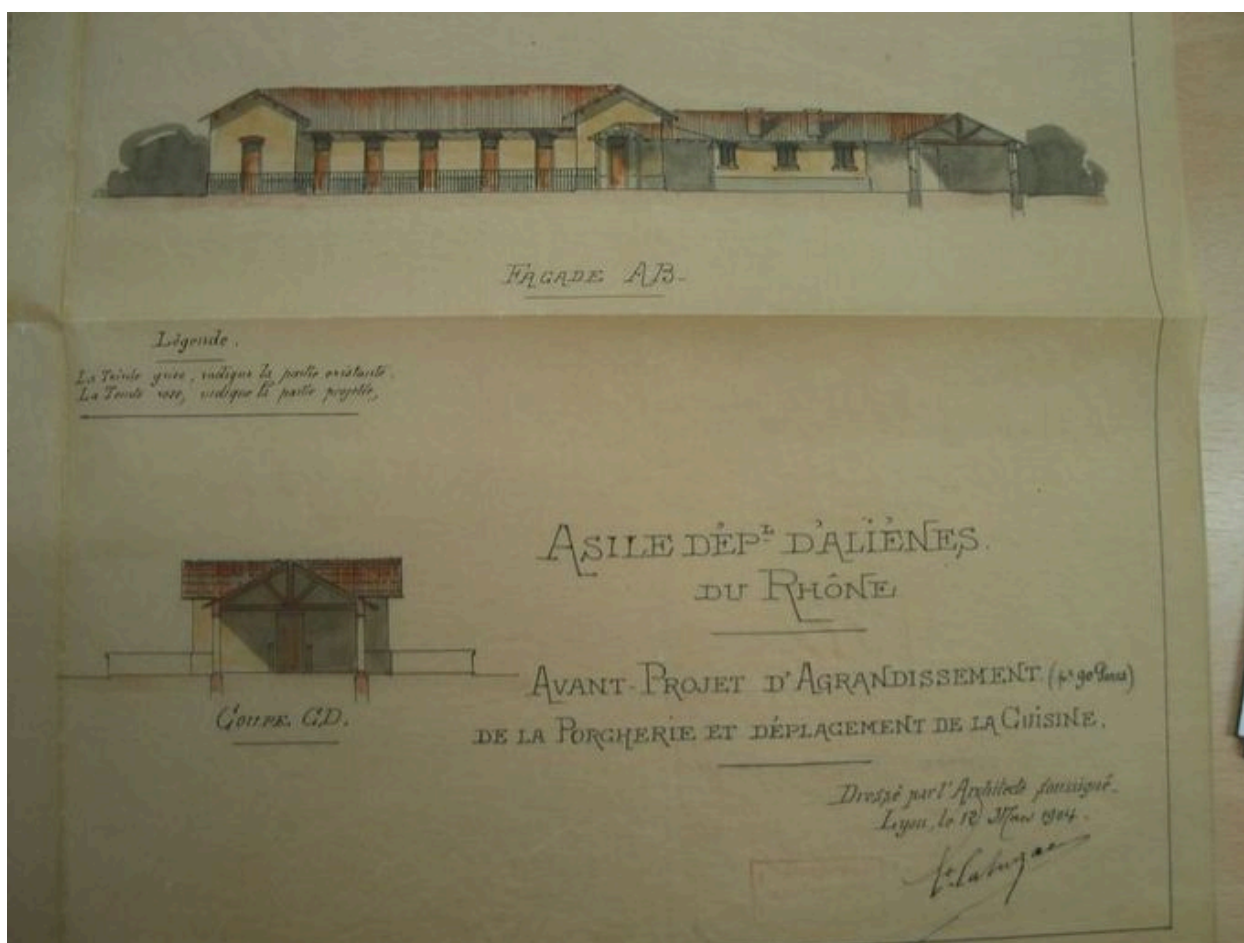 FAÇADE AB_
Légende.
La Teinte grise, indique la partie existante.
La Teinte rose, indique la partie projetée,
ASILE DÉPᵗ D'ALIÉNÉS.
DU RHÔNE
COUPE. CD.
AVANT-PROJET D'AGRANDISSEMENT
DE LA PORCHERIE ET DÉPLACEMENT DE LA CUISINE.
Dressé par l'Architecte soussigné.
Lyon, le 12 Mars 1904.